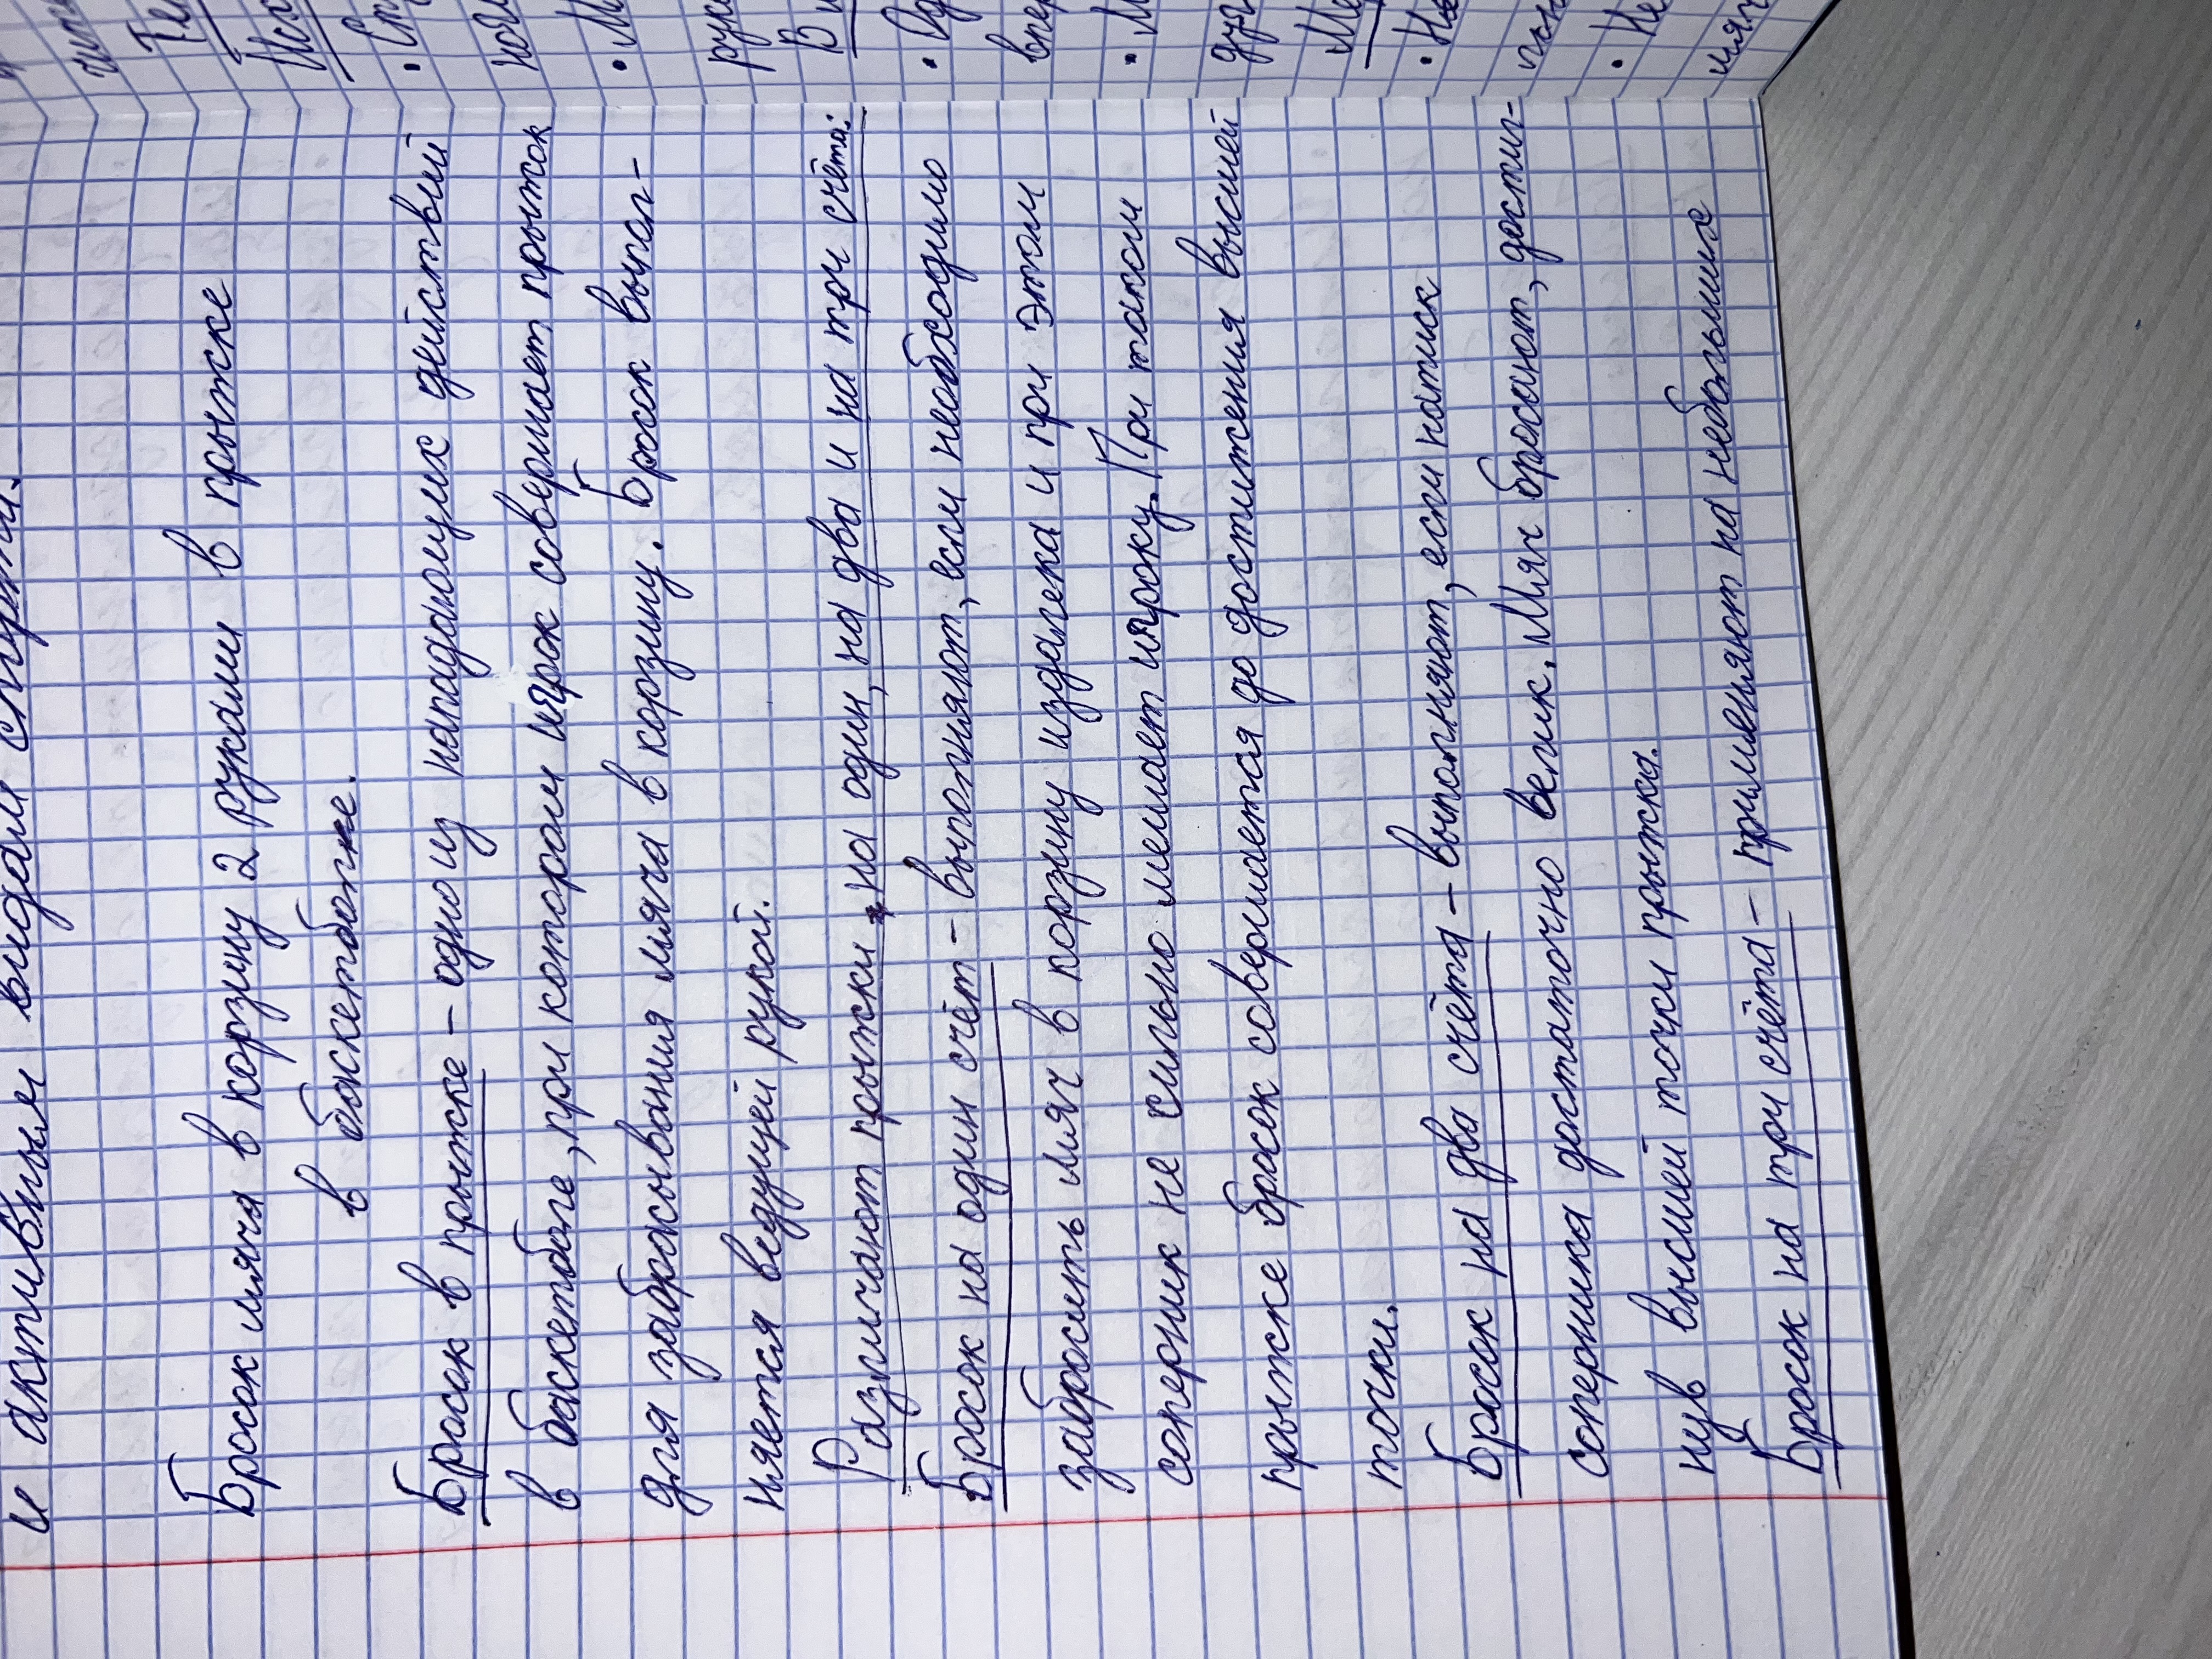 и активным видам спорта.
Бросок мяча в корзину 2 руками в прыжке
в баскетболе.
Бросок в прыжке - одно из нападающих действий
в баскетболе, при котором игрок совершает прыжок
для забрасывания мяча в корзину. Бросок выпол-
няется ведущей рукой.
Различают прыжки на один, на два и на три счёта:
Бросок на один счёт - выполняют, если необходимо
забросить мяч в корзину издалека и при этом
соперник не сильно мешает игроку. При таком
прыжке бросок совершается до достижения высшей
точки.
Бросок на два счёта - выполняют, если натиск
соперника достаточно велик. Мяч бросают, достиг-
нув высшей точки прыжка.
Бросок на три счёта - применяют на небольших